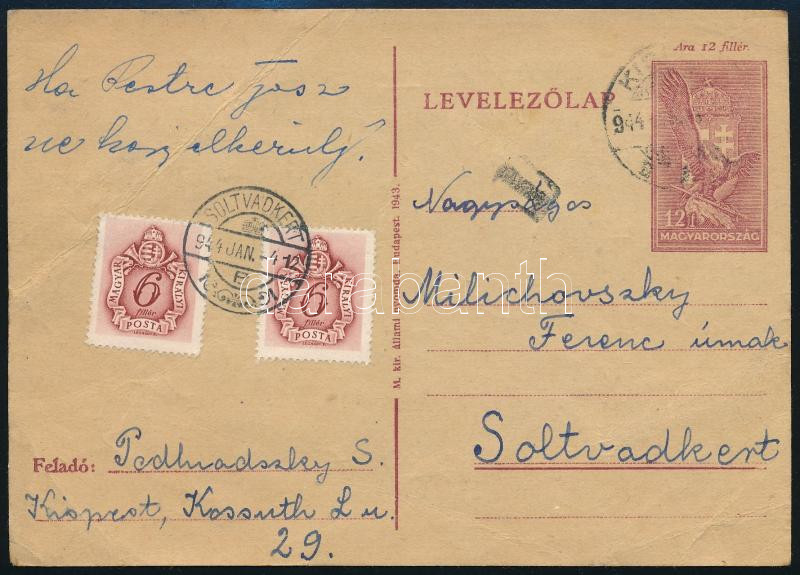 Ára 12 fillér.
LEVELEZŐLAP
Ha Pestre jösz
ne kerüljelkerülj!
944
12f
MAGYARORSZÁG
Nagyságos
Milichovszky
Ferenc úrnak
Soltvadkert
SOLTVADKERT
944 JAN. -4 12
MAGYAR KIRÁLYI
6
fillér
POSTA
MAGYAR KIRÁLYI
6
fillér
POSTA
M. kir. Állami nyomda, Budapest. 1943.
Feladó: Podhradszky S.
Kispest, Kossuth L u.
29.
carabanth